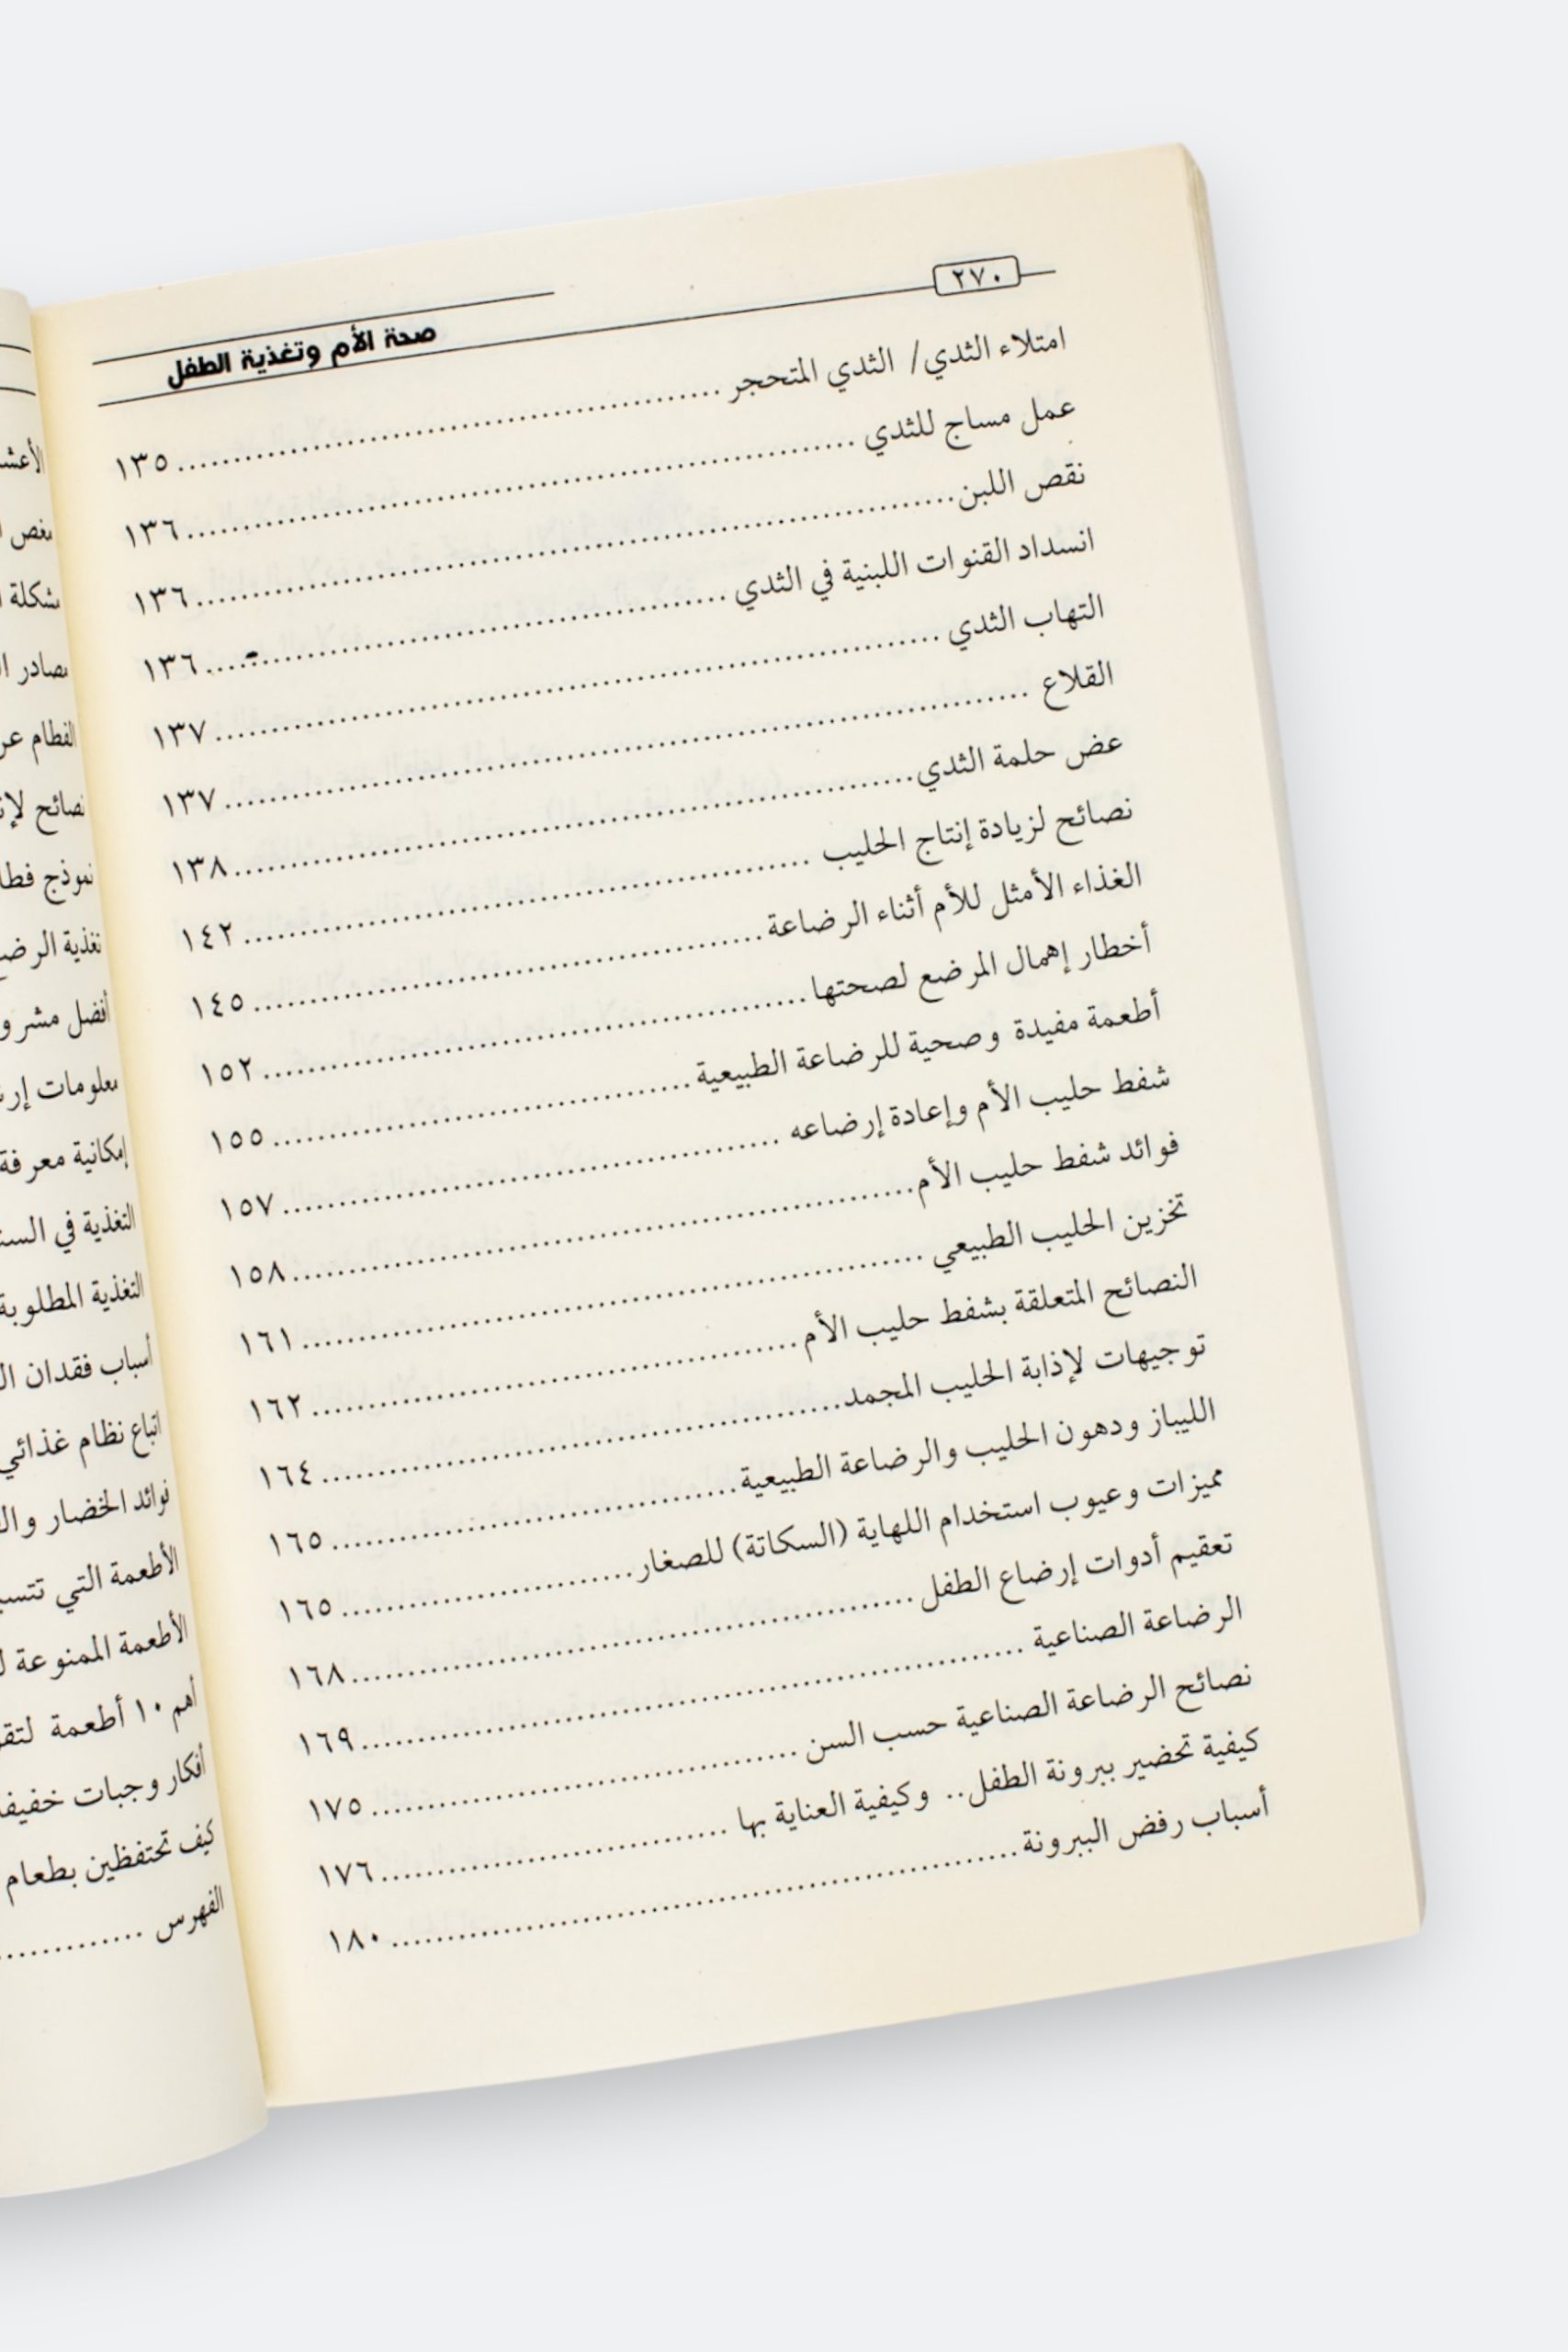 ٢٧٠
صحة الأم وتغذية الطفل
امتلاء الثدي/ الثدي المتحجر ........ ١٣٥
عمل مساج للثدي ........ ١٣٦
نقص اللبن ........ ١٣٦
انسداد القنوات اللبنية في الثدي ........ ١٣٦
التهاب الثدي ........ ١٣٧
القلاع ........ ١٣٧
عض حلمة الثدي ........ ١٣٨
نصائح لزيادة إنتاج الحليب ........ ١٤٢
الغذاء الأمثل للأم أثناء الرضاعة ........ ١٤٥
أخطار إهمال المرضع لصحتها ........ ١٥٢
أطعمة مفيدة وصحية للرضاعة الطبيعية ........ ١٥٥
شفط حليب الأم وإعادة إرضاعه ........ ١٥٧
فوائد شفط حليب الأم ........ ١٥٨
تخزين الحليب الطبيعي ........ ١٦١
النصائح المتعلقة بشفط حليب الأم ........ ١٦٢
توجيهات لإذابة الحليب المجمد ........ ١٦٤
الليباز ودهون الحليب والرضاعة الطبيعية ........ ١٦٥
مميزات وعيوب استخدام اللهاية (السكاتة) للصغار ........ ١٦٥
تعقيم أدوات إرضاع الطفل ........ ١٦٨
الرضاعة الصناعية ........ ١٦٩
نصائح الرضاعة الصناعية حسب السن ........ ١٧٥
كيفية تحضير ببرونة الطفل.. وكيفية العناية بها ........ ١٧٦
أسباب رفض الببرونة ........ ١٨٠
مغص
مشكلة
مصادر
الفطام
نصائح
نموذج
تغذية
أفضل
معلومات
إمكانية معرفة
التغذية في
التغذية المطلوبة
أسباب فقدان
اتباع نظام غذائي
فوائد الخضار
الأطعمة التي
الأطعمة الممنوعة
أهم ١٠ أطعمة
أفكار وجبات
كيف تحتفظين بطعام
الفهرس ........